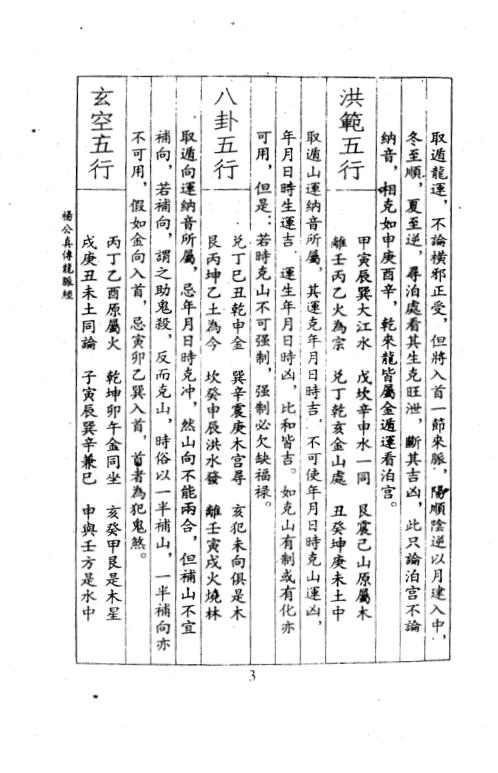 取遁龍運，不論橫邪正受，但將入首一節來脈，陽順陰逆以月建入中，
冬至順，夏至逆，尋泊處看其生克旺泄，斷其吉凶，此只論泊宮不論
納音，相克如申庚酉辛，乾來龍皆屬金遁運看泊宮。
洪範五行
甲寅辰巽大江水　戊坎辛申水一同　艮震己山原屬木
離壬丙乙火為宗　兌丁乾亥金山處　丑癸坤庚未土中
取遁山運納音所屬，其運克年月日時吉，不可使年月日時克山運凶，
年月日時生運吉，運生年月日時凶，比和皆吉。如克山有制或有化亦
可用，但是：若時克山不可強制，强制必欠缺福禄。
八卦五行
兌丁巳丑乾申金　巽辛震庚木宮尋　亥犯未向俱是木
艮丙坤乙土為今　坎癸申辰洪水發　離壬寅戌火燒林
取遁向運納音所屬，忌年月日時克冲，然山向不能兩合，但補山不宜
補向，若補向，謂之助鬼殺，反而克山，時俗以一半補山，一半補向亦
不可用，假如金向入首，忌寅卯乙巽入首，首者為犯鬼煞。
玄空五行
丙丁乙酉原屬火　乾坤卯午金同坐　亥癸甲艮是木星
戌庚丑未土同論　子寅辰巽辛兼巳　申與壬方是水中
楊公真傳龍脈經
3